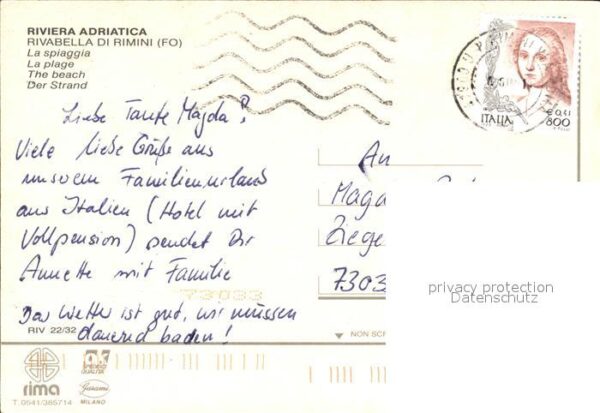 RIVIERA ADRIATICA
RIVABELLA DI RIMINI (FO)
La spiaggia
La plage
The beach
Der Strand
ITALIA
€ 0,41
800
Liebe Tante Magda!
Viele liebe Grüße aus
unserem Familienurlaub
aus Italien (Hotel mit
Vollpension) sendet Dir
Annette mit Familie
Das Wetter ist gut, wir müssen
dauernd baden!
An
Magda
Ziege
73033
73033
privacy protection
Datenschutz
RIV 22/32
NON SCR
rima
T. 0541/385714
Garami
MILANO